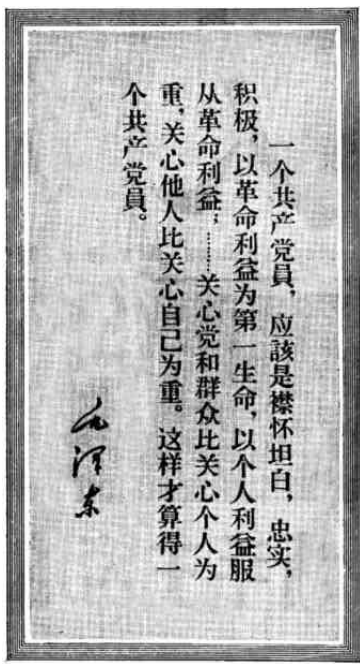 一个共产党員，应該是襟怀坦白，忠实，
积极，以革命利益为第一生命，以个人利益服
从革命利益；………关心党和群众比关心个人为
重，关心他人比关心自己为重。这样才算得一
个共产党員。
毛泽东